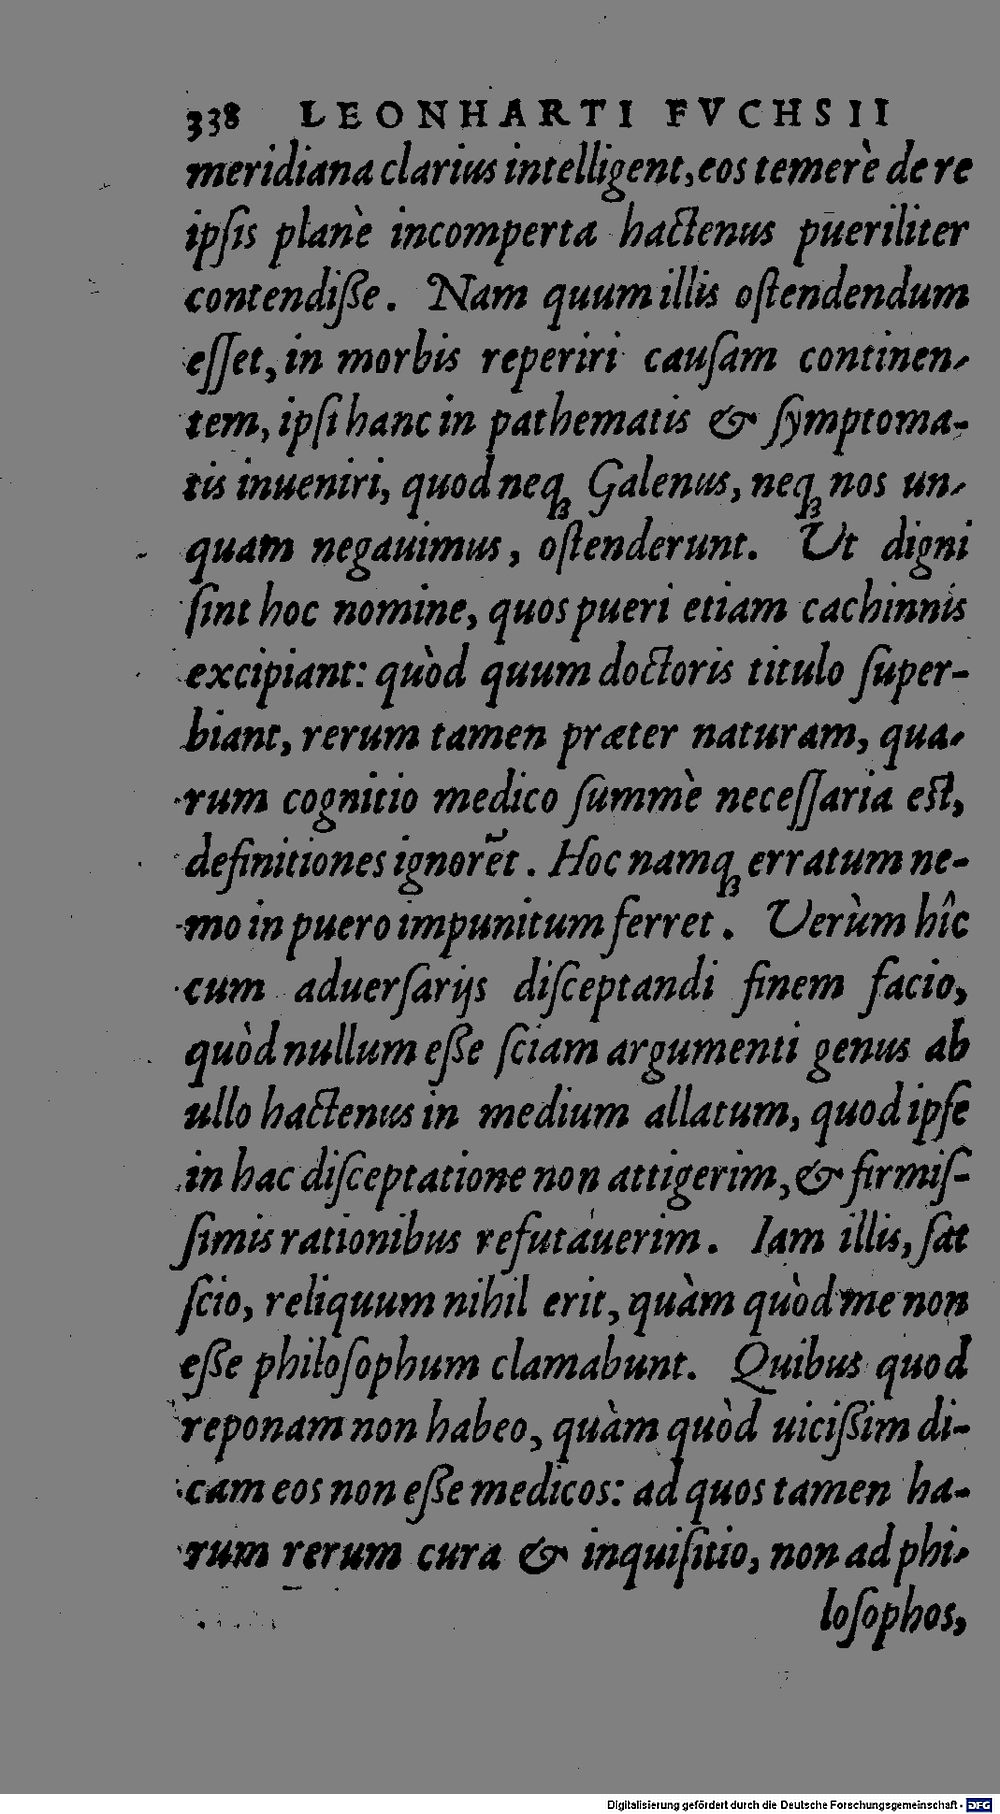 338 LEONHARTI FVCHSII
meridiana clarius intelligent, eos temerè de re
ipſis planè incomperta hactenus pueriliter
contendiße. Nam quum illis oſtendendum
eſſet, in morbis reperiri cauſam continen-
tem, ipſi hanc in pathematis & ſymptoma-
tis inueniri, quod neqꝫ Galenus, neqꝫ nos un-
quam negauimus, oſtenderunt. Ut digni
ſint hoc nomine, quos pueri etiam cachinnis
excipiant: quòd quum doctoris titulo ſuper-
biant, rerum tamen præter naturam, qua-
rum cognitio medico ſummè neceſſaria eſt,
definitiones ignorẽt. Hoc namqꝫ erratum ne-
mo in puero impunitum ferret. Uerùm hîc
cum aduerſarijs diſceptandi finem facio,
quòd nullum eße ſciam argumenti genus ab
ullo hactenus in medium allatum, quod ipſe
in hac diſceptatione non attigerim, & firmiſ-
ſimis rationibus refutauerim. Iam illis, ſat
ſcio, reliquum nihil erit, quàm quòd me non
eße philoſophum clamabunt. Quibus quod
reponam non habeo, quàm quòd uicißim di-
cam eos non eße medicos: ad quos tamen ha-
rum rerum cura & inquiſitio, non ad phi-
loſophos,
Digitalisierung gefördert durch die Deutsche Forschungsgemeinschaft - DFG